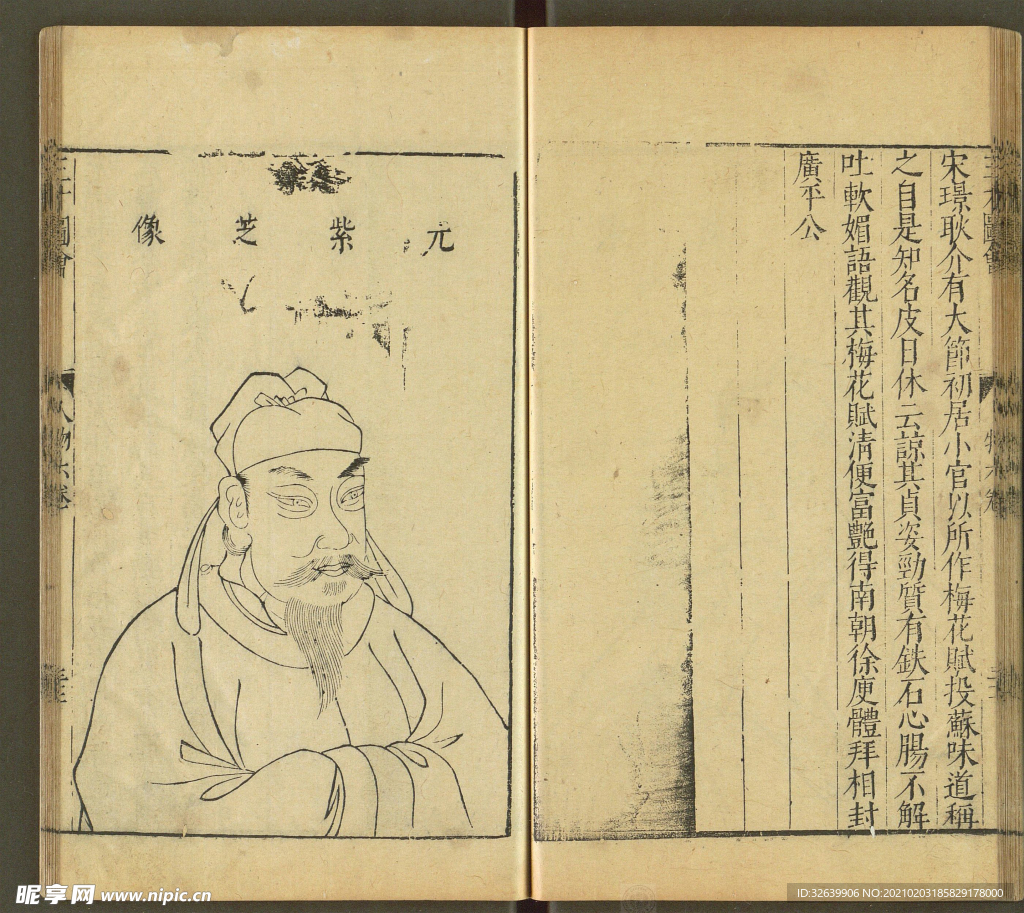 宋璟耿介有大節初居小官以所作梅花賦投蘇味道稱
之自是知名皮日休云諒其貞姿勁質有鉄石心腸不解
吐軟媚語觀其梅花賦清便富艷得南朝徐庾體拜相封
廣平公
元紫芝像
人物六卷
昵享网 www.nipic.cn
ID:32639906 NO:20210203185829178000